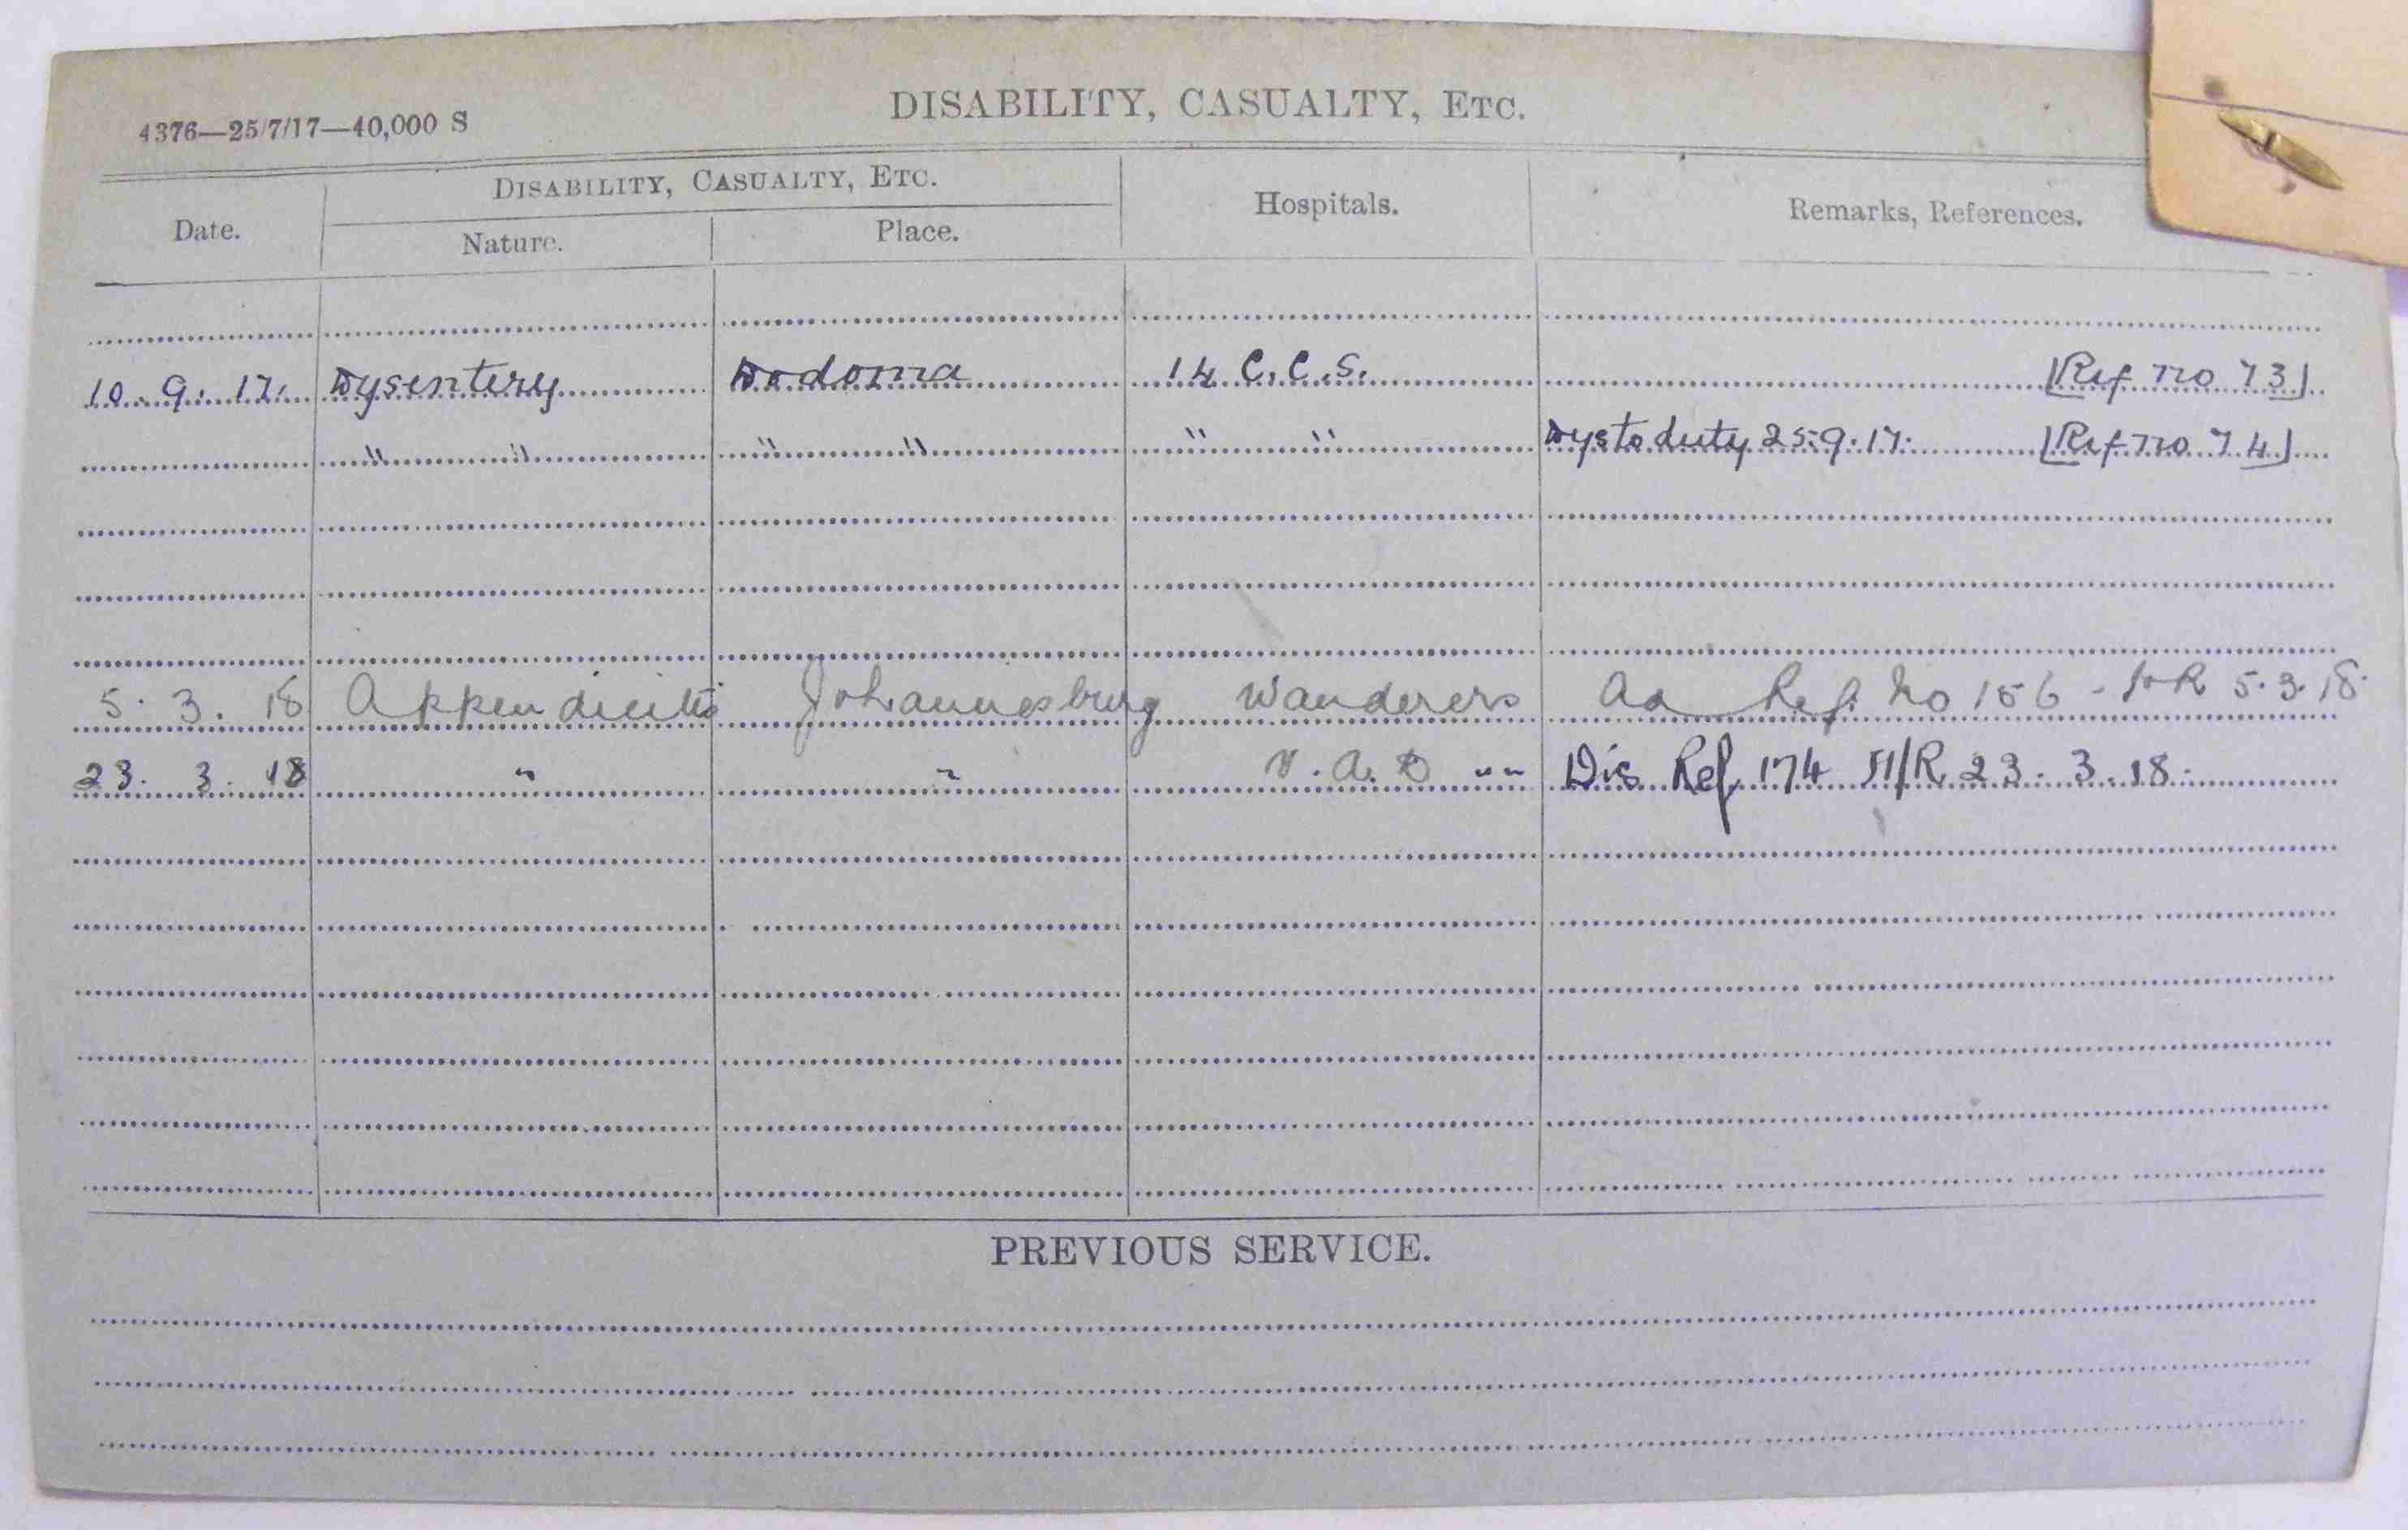 4376—25/7/17—40,000 S
DISABILITY, CASUALTY, ETC.
Date.
DISABILITY, CASUALTY, ETC.
Nature.
Place.
Hospitals.
Remarks, References.
10. 9. 17. Dysentery Dodoma 14 C.C.S. [Ref no 73]
" " " " " " Dysto duty 25.9.17. [Ref no 74]
5. 3. 18 Appendicitis Johannesburg Wanderers Ad Ref. No 156 - H R 5.3.18.
23. 3. 18 " " V.A.D "" Dis Ref 174 H/R 23. 3. 18.
PREVIOUS SERVICE.